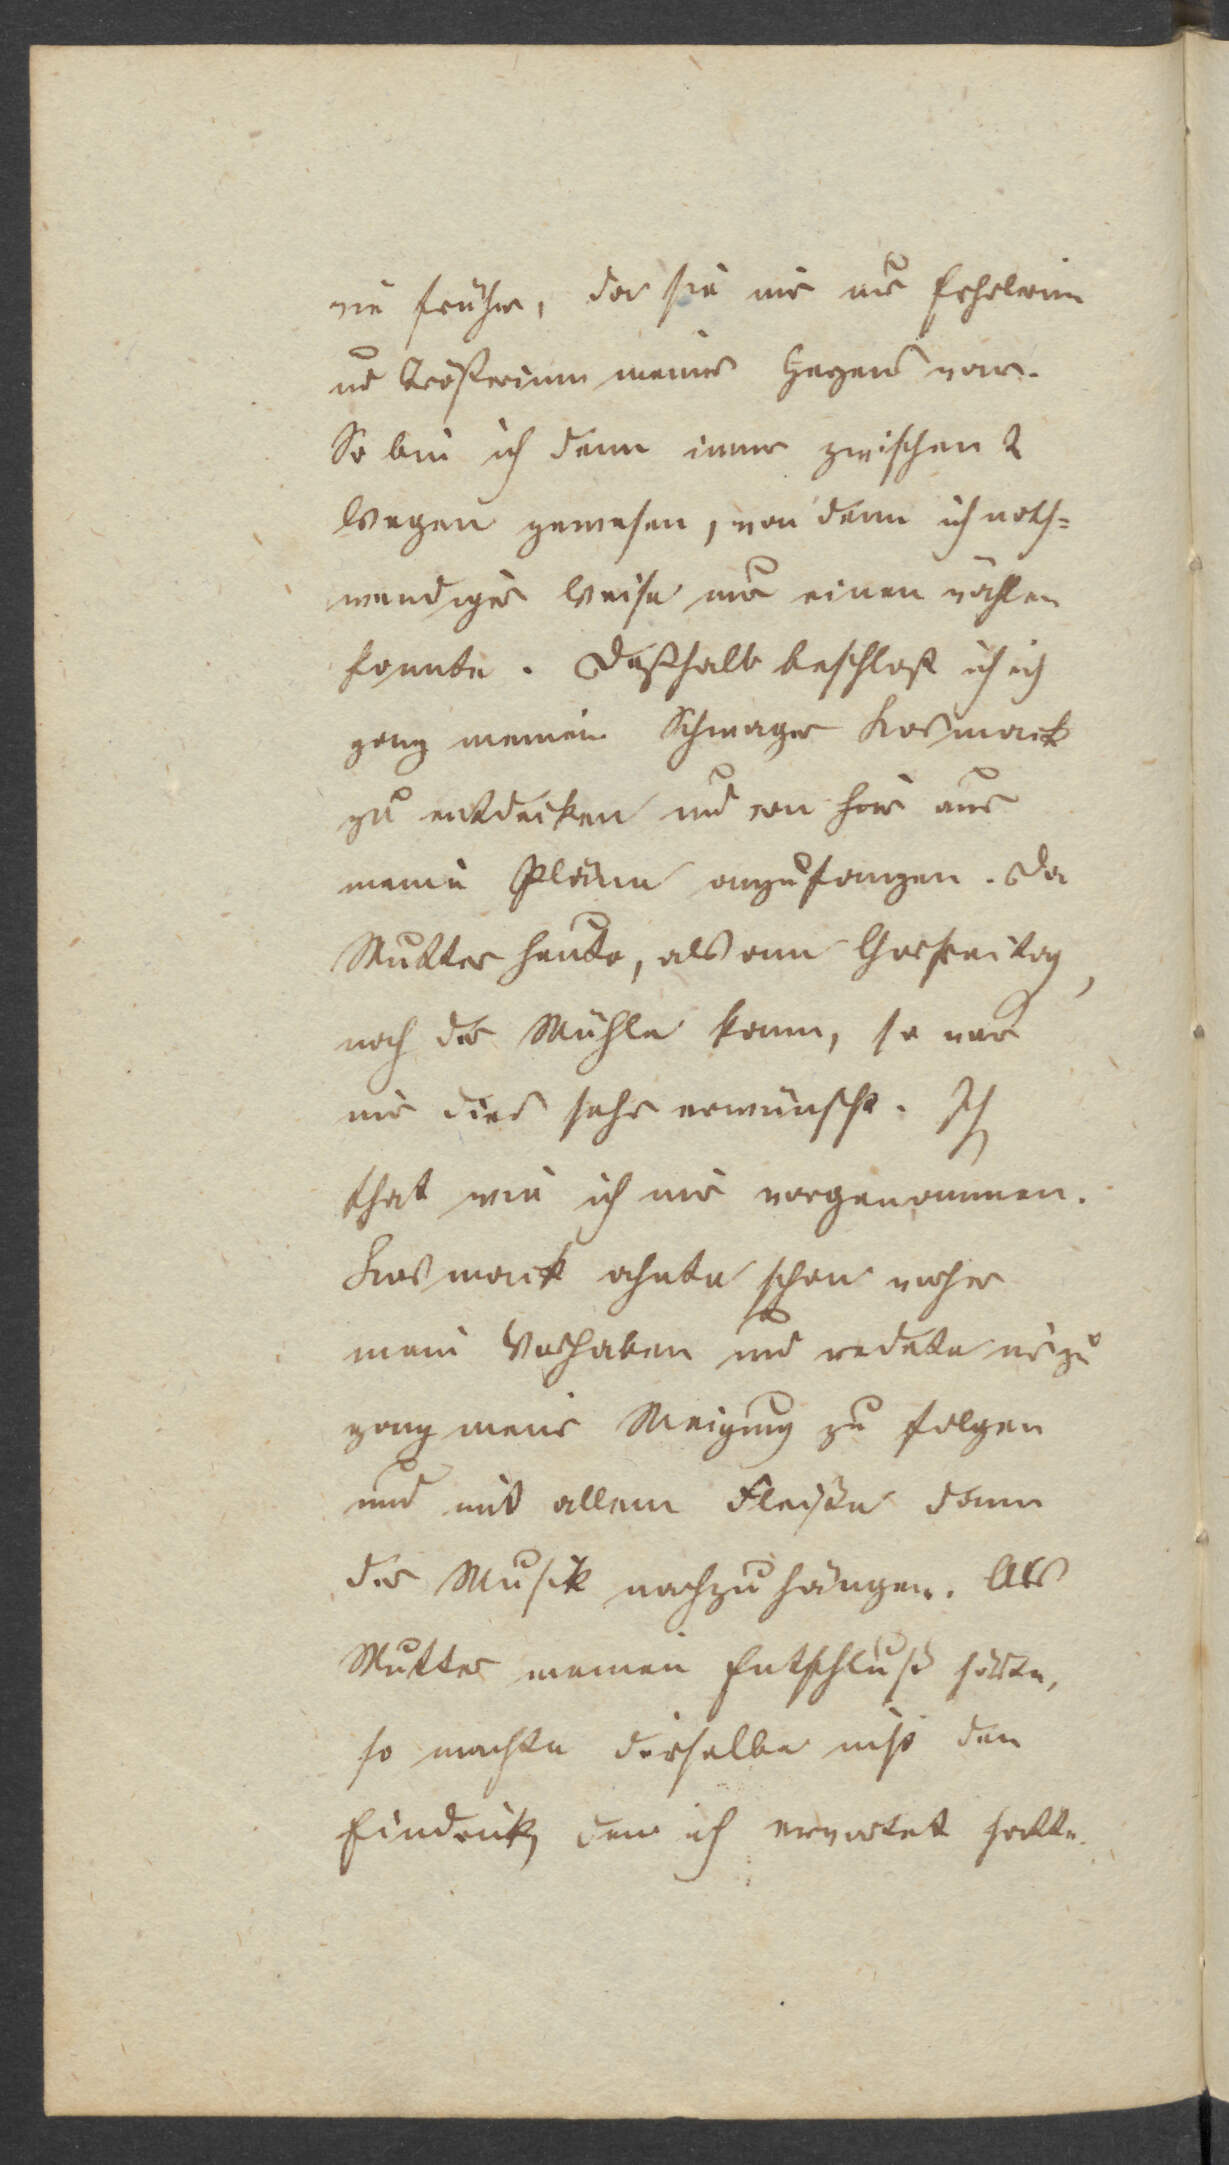 wie früher, da sie mir nur Erholerinn
und Trösterinn meines Herzens war.
So bin ich denn immer zwischen 2
Wegen gewesen, von denn ich noth=
wendiger Weise nur einen wählen
konnte. Deßhalb beschloß ich
ganz meinem Schwager Kosmack
zu entdecken und von hier aus
meine Pläne anzufangen. Da
Mutter heute, als am Charfreitag,
nach der Mühle kam, so war
mir dies sehr erwünscht. Ich
that wie ich mir vorgenommen.
Kosmack ahnte schon vorher
mein Vorhaben und redete mir zu
ganz meiner Neigung zu folgen
und mit allem Fleiße dann
der Musik nachzuhängen. Als
Mutter meinen Entschluß hörte,
so machte derselbe nicht den
Eindruck, den ich erwartet hatte.